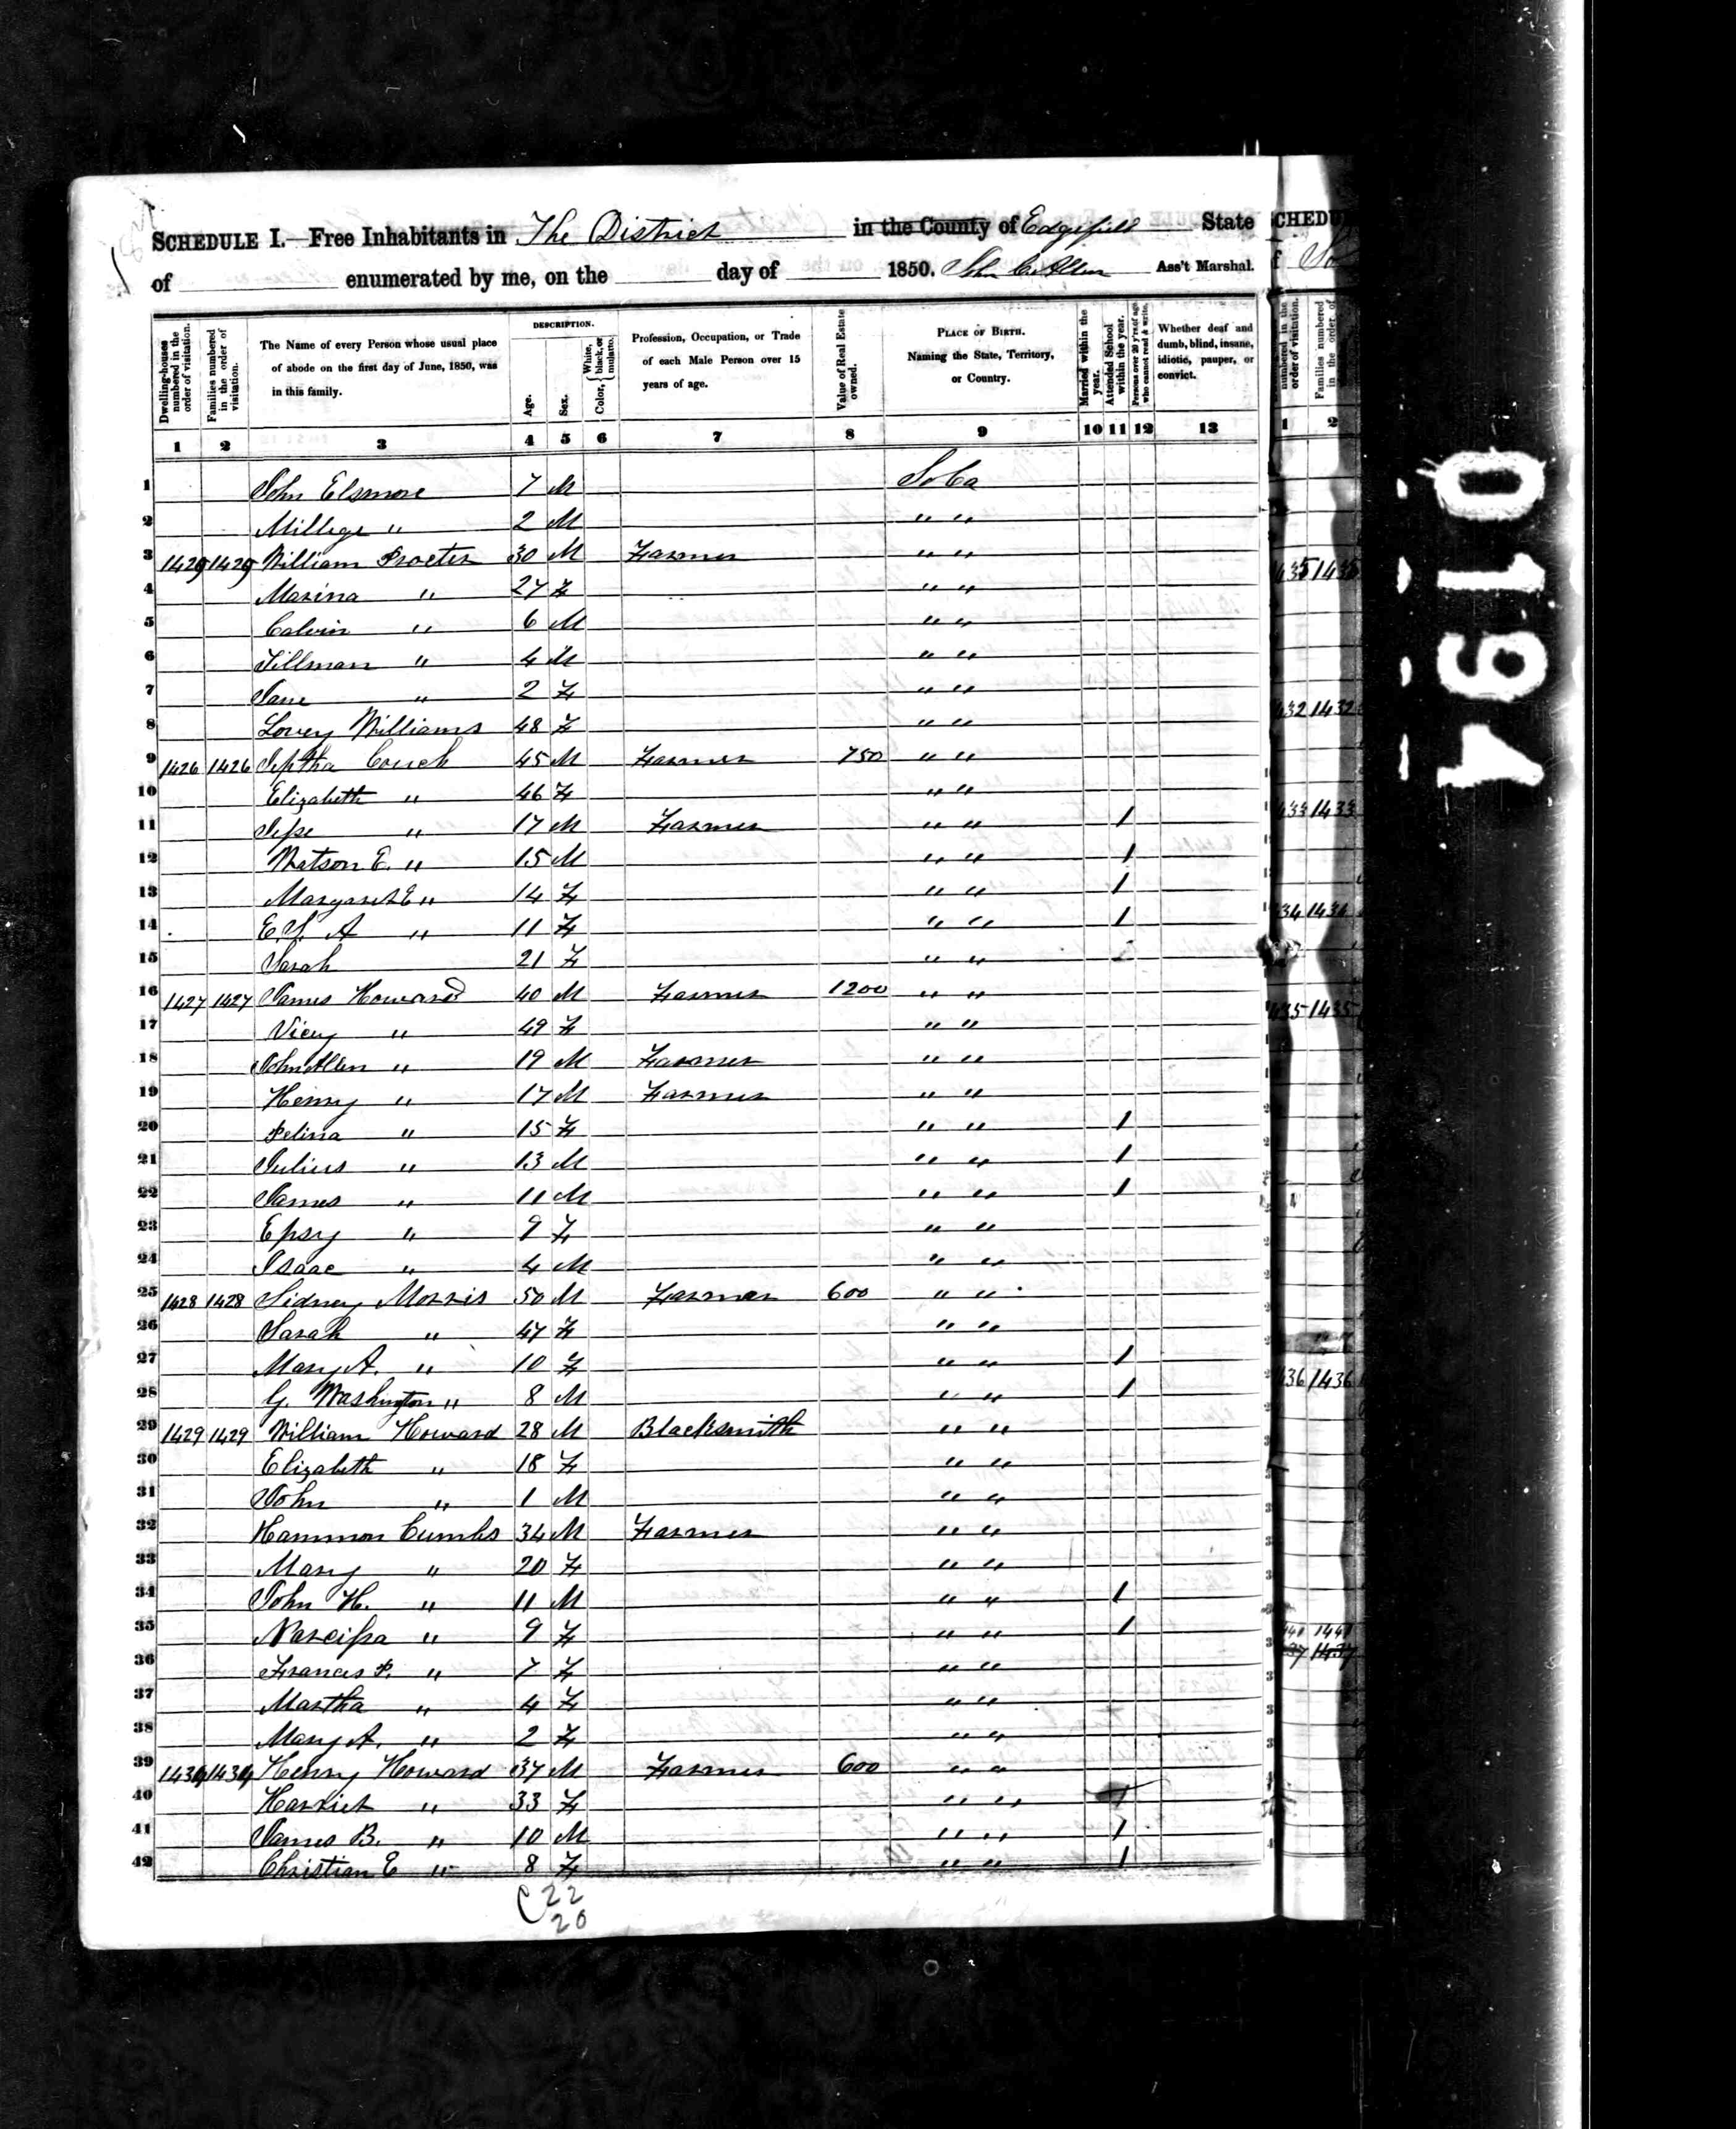 SCHEDULE I.—Free Inhabitants in The District in the County of Edgefield State
of enumerated by me, on the day of 1850. John C. Allen Ass't Marshal.
Dwelling-houses numbered in the order of visitation.
Families numbered in the order of visitation.
The Name of every Person whose usual place of abode on the first day of June, 1850, was in this family.
DESCRIPTION.
Age.
Sex.
Color, { White, black, or mulatto.
Profession, Occupation, or Trade of each Male Person over 15 years of age.
Value of Real Estate owned.
PLACE OF BIRTH. Naming the State, Territory, or Country.
Married within the year.
Attended School within the year.
Persons over 20 y'rs of age who cannot read & write.
Whether deaf and dumb, blind, insane, idiotic, pauper, or convict.
1 2 3 4 5 6 7 8 9 10 11 12 13
1 John Elsmore 7 M So Ca
2 Millege " 2 M " "
3 1429 1429 William Procter 30 M Farmer " "
4 Marina " 27 F " "
5 Calvin " 6 M " "
6 Tillman " 4 M " "
7 Jane " 2 F " "
8 Lovey Williams 48 F " "
9 1426 1426 Jeptha Couch 45 M Farmer 750 " "
10 Elizabeth " 46 F " "
11 Jesse " 17 M Farmer " " 1
12 Watson E. " 15 M " " 1
13 Margaret E " 14 F " " 1
14 E. S. A " 11 F " " 1
15 Sarah 21 F " "
16 1427 1427 James Howard 40 M Farmer 1200 " "
17 Vicy " 49 F " "
18 John Allen " 19 M Farmer " "
19 Henry " 17 M Farmer " "
20 Pelina " 15 F " " 1
21 Julius " 13 M " " 1
22 James " 11 M " " 1
23 Epsy " 9 F " "
24 Isaac " 4 M " "
25 1428 1428 Sidney Morris 50 M Farmer 600 " "
26 Sarah " 47 F " "
27 Mary A. " 10 F " " 1
28 G. Washington " 8 M " " 1
29 1429 1429 William Howard 28 M Blacksmith " "
30 Elizabeth " 18 F " "
31 John " 1 M " "
32 Hammon Cumbs 34 M Farmer " "
33 Mary " 20 F " "
34 John H. " 11 M " " 1
35 Narcissa " 9 F " " 1
36 Frances P. " 7 F " "
37 Martha " 4 F " "
38 Mary A. " 2 F " "
39 Henry Howard 37 M Farmer 600 " "
40 Harriet " 33 F " "
41 James B. " 10 M " " 1
42 Christian E " 8 F " " 1
22
20
0194